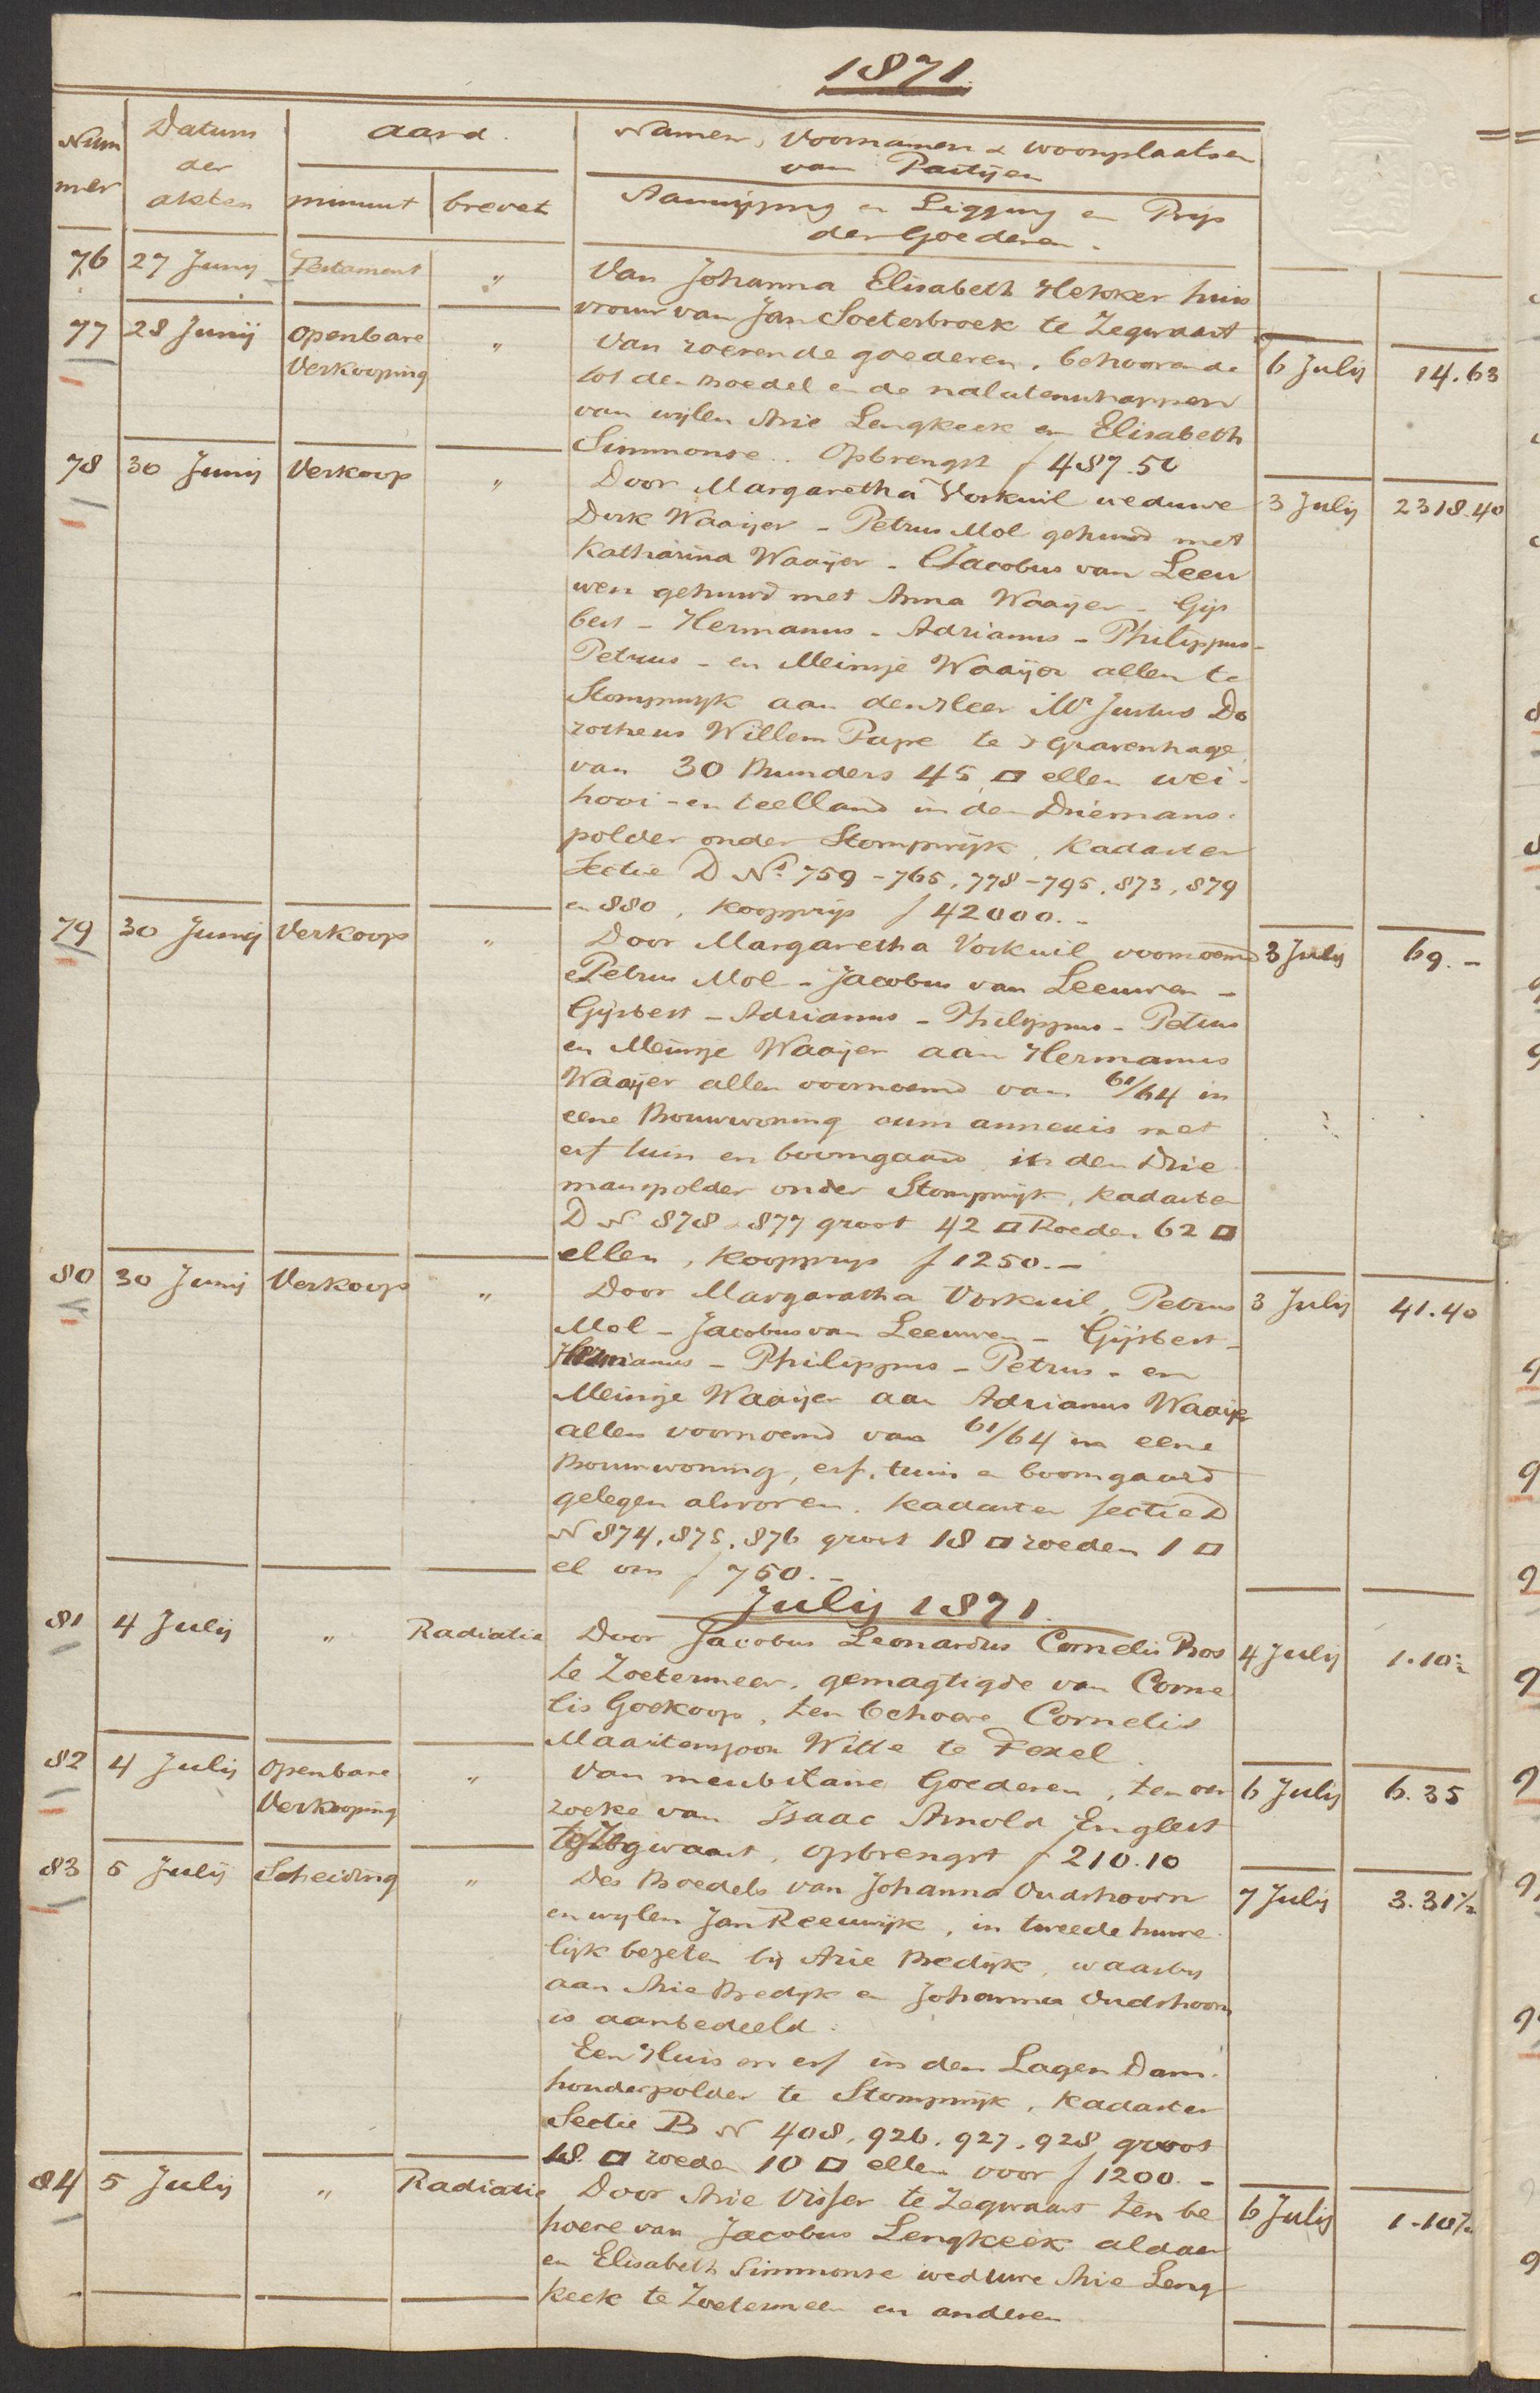 1871.
Nummer
Datum der akten
aard.
minuut
brevet
Namen, Voornamen & woonplaatsen
van Partijen
Aanwijzing en Ligging en Prijs
der Goederen.
76 27 Junij Testament " Van Johanna Elisabeth Hekker huis
vrouw van Jan Soeterbroek te Zegwaart
77 28 Junij Openbare Verkooping " Van roerende goederen, behoorende 6 Julij 14.63
tot den boedel en de nalatenschappen
van wijlen Arie Lengkeek en Elisabeth
Simmonse. Opbrengst f 487.50
78 30 Junij Verkoop " Door Margaretha Vorkuil weduwe 3 Julij 2318.40
Dirk Waaijer - Petrus Mol gehuwd met
Katharina Waaijer - Jacobus van Leeu
wen gehuwd met Anna Waaijer - Gijs
bert - Hermanus - Adrianus - Philippus -
Petrus - en Meinsje Waaijer allen te
Stompwijk aan den Heer Mr Justus Do
rotheus Willem Pape te s Gravenhage
van 30 Bunders 45 □ ellen wei-
hooi- en teelland in den Driemans-
polder onder Stompwijk, Kadaster
Sectie D Ns 759 - 765, 778 - 795, 873, 879
en 880, Koopprijs f 42000.-
79 30 Junij Verkoop " Door Margaretha Vorkuil voornoemd 3 Julij 69.-
Petrus Mol - Jacobus van Leeuwen -
Gijsbert - Adrianus - Philippus - Petrus
en Meinsje Waaijer aan Hermanus
Waaijer allen voornoemd van 61/64 in
eene Bouwwoning cum annexis met
erf tuin en boomgaard in den Drie
manspolder onder Stompwijk, Kadaster
D N 878 & 877 groot 42 □ Roeden 62 □
ellen, Koopprijs f 1250.-
80 30 Junij Verkoop " Door Margaratha Vorkuil, Petrus 3 Julij 41.40
Mol - Jacobus van Leeuwen - Gijsbert -
Hermanus - Philippus - Petrus - en
Meinsje Waaijer aan Adrianus Waaijer
allen voornoemd van 61/64 in eene
Bouwwoning, erf, tuin en boomgaard
gelegen alsvoren. Kadaster sectie D
N 874, 875, 876 groot 18 □ roeden 1 □
el om f 750.-
Julij 1871.
81 4 Julij " Radiatie Door Jacobus Leonardus Cornelis Bos 4 Julij 1.10½
te Zoetermeer, gemagtigde van Corne
lis Goekoop, ten behoeve Cornelis
Maartenszoon Witte te Texel.
82 4 Julij Openbare Verkooping " Van meubilaire Goederen, ten ver 6 Julij 6.35
zoeke van Isaac Arnold Englert
te Zegwaart, opbrengst f 210.10
83 5 Julij Scheiding " Des Boedels van Johanna Oudshoorn 7 Julij 3.31½
en wijlen Jan Reeuwijk, in tweede huwe
lijk bezeten bij Arie Bredijk, waarbij
aan Arie Bredijk en Johanna Oudshoorn
is aanbedeeld.
Een Huis en erf in den Lagen Dam-
houderpolder te Stompwijk, Kadaster
Sectie B N 408, 926, 927, 928 groot
18 □ roeden 10 □ ellen voor f 1200.-
84 5 Julij " Radiatie Door Arie Visser te Zegwaart ten be 6 Julij 1.10½
hoeve van Jacobus Lengkeek aldaar
en Elisabeth Simmonse weduwe Arie Leng
keek te Zoetermeer en anderen